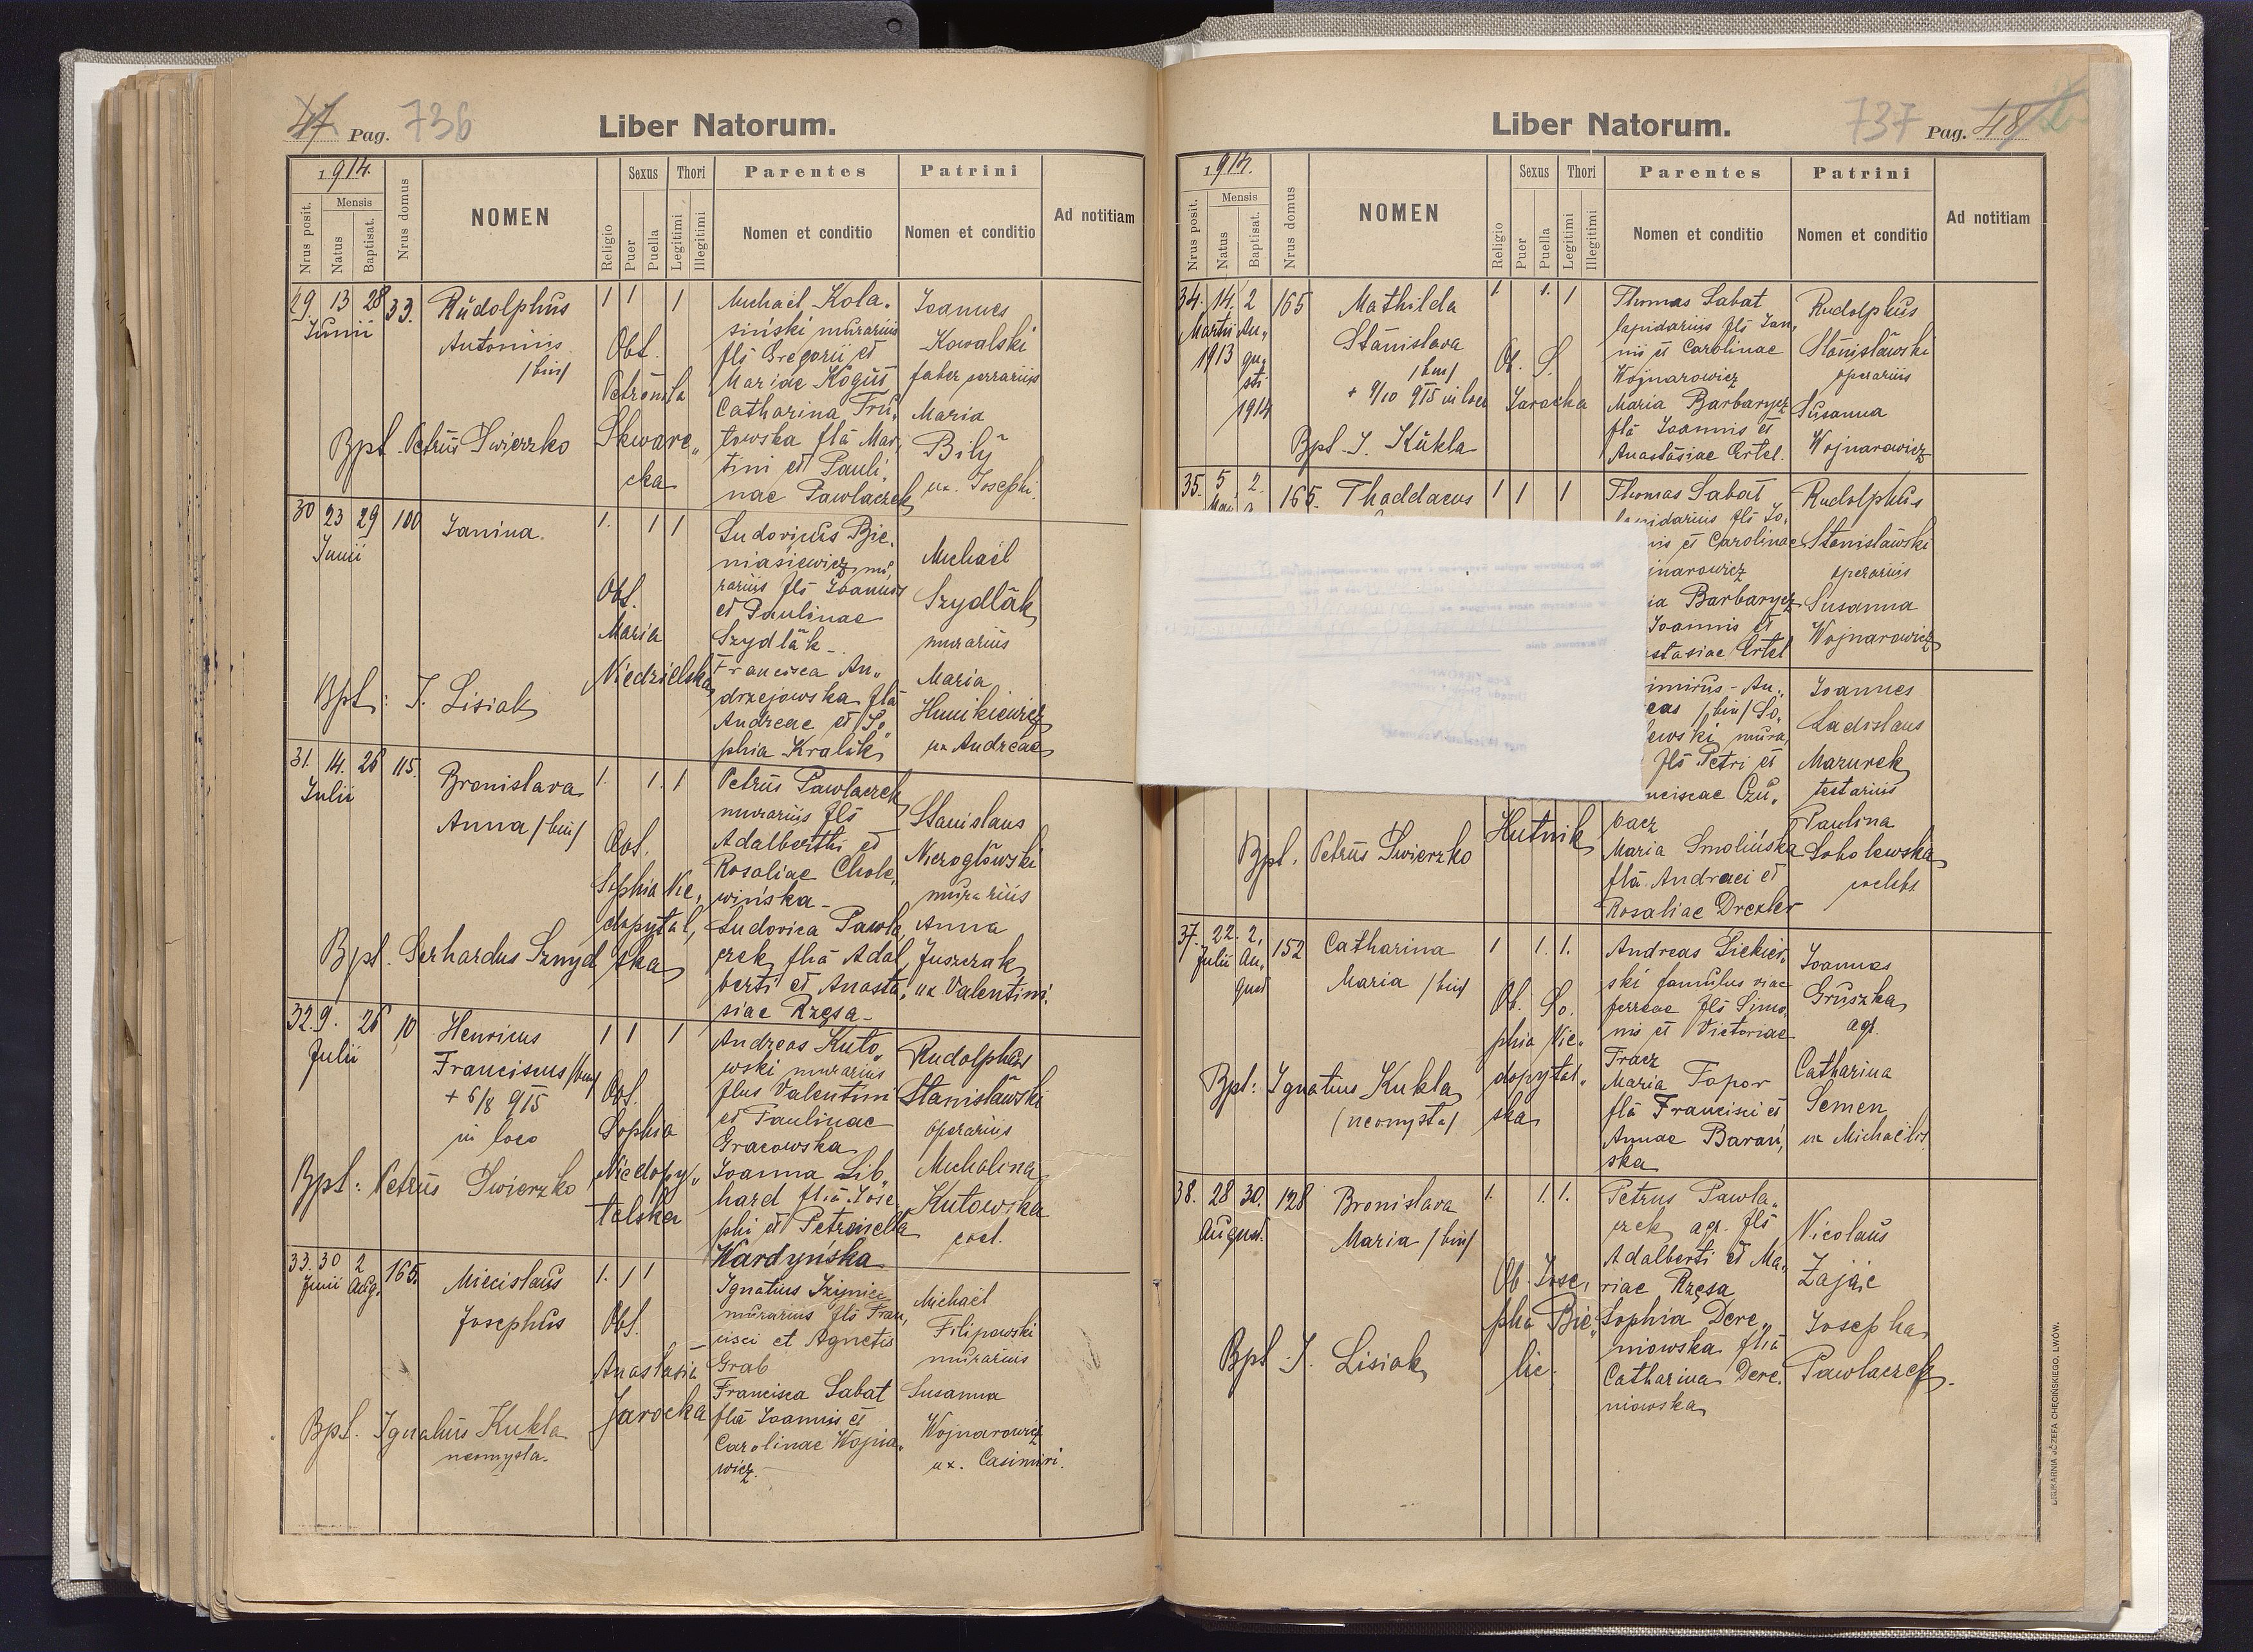 47 Pag. 736
Liber Natorum.
1914.
Nrus posit.
Mensis
Natus
Baptisat.
Nrus domus
NOMEN
Religio
Sexus
Puer
Puella
Thori
Legitimi
Illegitimi
Parentes
Nomen et conditio
Patrini
Nomen et conditio
Ad notitiam
29. 13 28 33.
Junii
Rudolphus
Antonius
/bin/
Bpt. Petrus Swierzko
1 1 1
Obst.
Petronela
Skware„
cka
Michaël Kola„
siński murarius
fls Gregorii et
Mariae Kogus
Catharina Tru„
towska fla Mar„
tini et Pauli„
nae Pawlaczek
Joannes
Kowalski
faber ferrarius
Maria
Bily
ux. Josephi.
30 23 29 100
Junii
Janina.
Bpt: J. Lisiak
1. 1 1
Obst.
Maria
Niedzielska
Ludovicus Bie„
niasiewicz mu„
rarius fls Joannis
et Paulinae
Szydlak -
Francisca An„
drzejowska fla
Andreae et So„
phia Kralik
Michaël
Szydlak
murarius
Maria
Hunikiewicz
ux Andreae
31. 14. 26 115.
Julii
Bronislava
Anna /bin/
Bpt. Gerhardus Szmyd
1. 1. 1
Obst.
Sophia Nie„
dopytal„
ska
Petrus Pawlaczek
murarius fls
Adalberthi et
Rosaliae Chole„
wińska -
Ludovica Pawla„
czek flia Adal„
berti et Anasta„
siae Rzęsa -
Stanislaus
Niezogłowski
murarius
Anna
Juszczak
ux. Valentini.
32. 9. 26 10
Julii
Henricus
Franciscus /bin/
+ 6/8 915
in loco
Bpt: Petrus Swierzko
1 1 1
Obst.
Sophia
Niedopy„
talska
Andreas Kuto„
wski murarius
flus Valentini
et Paulinae
Gracowska
Joanna Lib„
hard flia Jose„
phi et Petronella
Wardyńska
Rudolphus
Stanisławski
operarius
Michalina
Kutowska
coel.
33. 30 2 165.
Junii Aug.
Miecislaus
Josephus
Bpt. Ignatius Kukla
neomysta.
1. 1 1
Obst.
Anastasia
Jarocka
Ignatius
murarius fls Fran„
cisci et Agnetis
Grab
Francisca Sabat
flia Joannis et
Carolinae Wojna„
wicz.
Michaël
Filipowski
murarius
Susanna
Wojnarowicz
ux. Casimiri.
Liber Natorum.
737 Pag. 48
1914.
Nrus posit.
Mensis
Natus
Baptisat.
Nrus domus
NOMEN
Religio
Sexus
Puer
Puella
Thori
Legitimi
Illegitimi
Parentes
Nomen et conditio
Patrini
Nomen et conditio
Ad notitiam
34. 14. 2 165
Martii Au„
1913 gu„
sti
1914
Mathilda
Stanislava
/bin/
+ 9/10 915 in loco
Bpt J. Kukla
1. 1. 1
Ob. S.
Jarocka
Thomas Sabat
lapidarius fls Joan„
nis et Carolinae
Wojnarowicz
Maria Barbarycz
fla Joannis et
Anastasiae Ertel.
Rudolphus
Stanisławski
operarius
Susanna
Wojnarowicz
35. 5 2. 165.
Thaddaeus
1 1 1
Thomas Sabat
lapidarius fls Jo„
nis et Carolinae
inarowicz
ia Barbarycz
Joannis et
stasiae Ertel
Rudolphus
Stanisławski
operarius
Susanna
Wojnarowicz
Bpt. Petrus Swierzko
Hutnik
imirus - An„
eas /bin/ So„
lewski mura„
fls Petri et
nciscae Czu„
pacz
Maria Smolińska
fla Andraei et
Rosaliae Drexler
Joannes
Ladislaus
Mazurek
testarius
Paulina
Sobolewska
coelebs
37. 22. 2. 152
Julii Au„
gust
Catharina
Maria /bin/
Bpt: Ignatius Kukla
(neomysta)
1 1. 1.
Ob. So„
phia Nie„
dopytal„
ska
Andreas Siekier„
ski famulus viae
ferreae fls Simo„
nis et Victoriae
Fracz
Maria Topor
fla Francisci et
Annae Barań„
ska
Joannes
Gruszka
agr.
Catharina
Semen
ux Michaelis
38. 28 30. 128
August.
Bronislava
Maria /bin/
Bpt J. Lisiak
1. 1. 1.
Ob. Jose„
pha Bie„
lic.
Petrus Pawla„
czek agr. fls
Adalberti et Ma„
riae Rzęsa
Sophia Dere„
niowska flia
Catharina Dere„
niowska
Nicolaus
Zając
Josepha
Pawlaczek.
DRUKARNIA JÓZEFA CHĘCIŃSKIEGO, LWÓW.